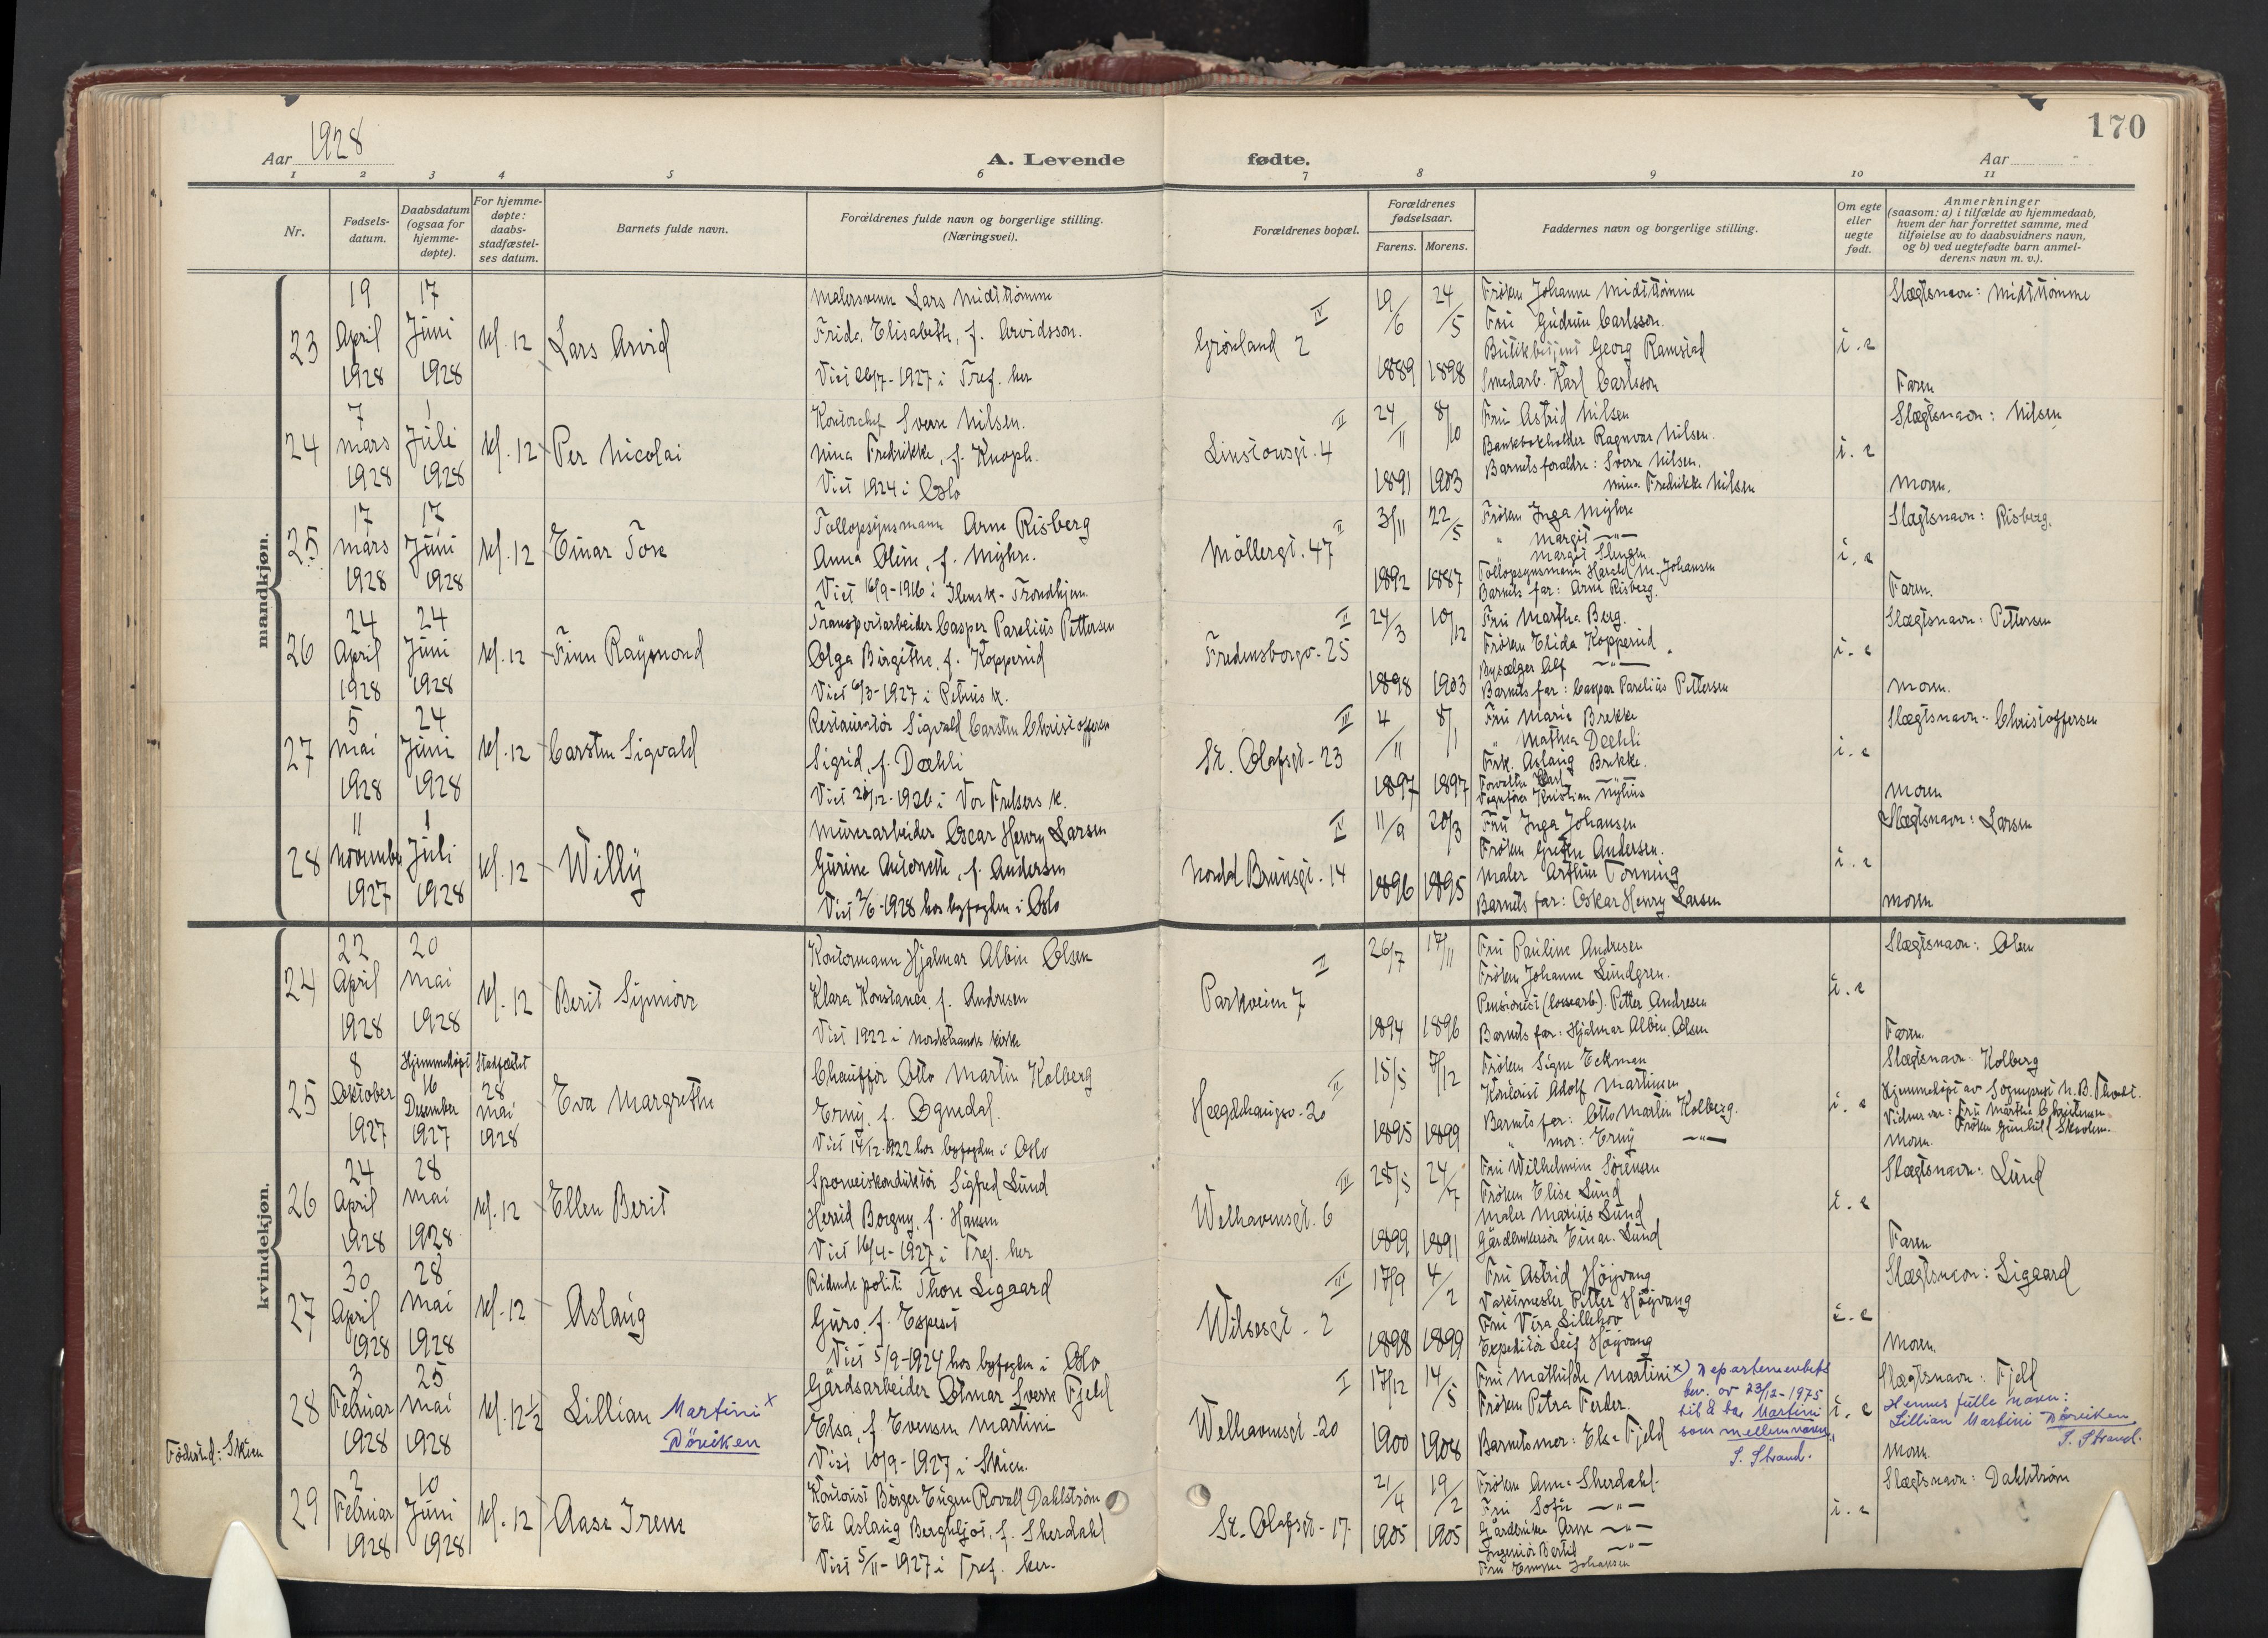 170
Aar 1928
A. Levende
fødte.
Aar
1 2 3 4 5 6 7 8 9 10 11
Nr.
Fødsels-
datum.
Daabsdatum
(ogsaa for
hjemme-
døpte).
For hjemme-
døpte:
daabs-
stadfæstel-
ses datum.
Barnets fulde navn.
Forældrenes fulde navn og borgerlige stilling.
(Næringsvei).
Forældrenes bopæl.
Forældrenes
fødselsaar.
Farens. Morens.
Faddernes navn og borgerlige stilling.
Om egte
eller
uegte
født.
Anmerkninger
(saasom: a) i tilfælde av hjemmedaab,
hvem der har forrettet samme, med
tilføielse av to daabsvidners navn,
og b) ved uegtefødte barn anmel-
derens navn m. v.).
mandkjøn.
23
19 April 1928
17 Juni 1928
kl. 12
Lars Arvid
Malersvenn Lars Midttömme
Frida Elisabeth, f. Arvidsson.
Viet 26/7-1927 i Tref. her
Grönland 2 IV
19/6 1889
24/5 1898
Fröken Johanne Midttömme
Fru Gudrun Carlsson.
Butikbetjent Georg Ramstad
Smedarb. Karl Carlsson
i. e
Slægtsnavn: Midttömme
Faren
24
7 mars 1928
1 Juli 1928
kl. 12
Per Nicolai
Kontorchef Sverre Nilsen.
Nina Fredrikke, f. Knoph.
Viet 1924 i Oslo
Linstowsgt. 4 II
24/11 1891
8/10 1903
Fru Astrid Nilsen
Bankbokholder Ragnvar Nilsen.
Barnets foreldre: Sverre Nilsen.
Nina Fredrikke Nilsen
i. e
Slægtsnavn: Nilsen
Moren.
25
17 mars 1928
17 Juni 1928
kl. 12
Einar Tore
Tollopsynsmann Arne Risberg
Anna Oline, f. Myhre.
Viet 16/9-1916 i Ilens k. Trondhjem.
Möllergt. 47 II
3/11 1892
22/5 1887
Fröken Inga Myhre
" Margit —"—
" Margit Slungen
Tollopsynsmann Harald M. Johansen
Barnets far: Arne Risberg.
i. e
Slægtsnavn: Risberg.
Faren.
26
24 April 1928
24 Juni 1928
kl. 12
Finn Raymond
Transportarbeider Casper Parelius Pettersen
Olga Birgithe, f. Kopperud
Viet 6/3-1927 i Petrus k.
Fredensborgv. 25 II
24/3 1898
10/12 1903
Fru Martha Berg.
Fröken Elida Kopperud
Bysælger Alf —"—
Barnets far: Caspar Parelius Pettersen
i. e
Slægtsnavn: Pettersen
Moren.
27
5 mai 1928
24 Juni 1928
kl. 12
Carsten Sigvald
Restauratör Sigvald Carsten Christoffersen
Sigrid, f. Dæhli
Viet 21/12-1926 i Vor Frelsers k.
St. Olafsgt. 23 III
4/11 1897
8/1 1897
Fru Marie Brekke
" Mathea Dæhli
Frk. Aslaug Brekke.
Kristian Nylius
i. e
Slægtsnavn: Christoffersen
Moren
28
11 november 1927
1 Juli 1928
kl. 12
Willy
Murerarbeider Oscar Henry Larsen
Gurine Antonette, f. Andersen
Viet 2/6-1928 hos byfogden i Oslo
Nordal Brunsgt. 14 IV
11/9 1896
20/3 1895
Fru Inga Johansen
Fröken Grethe Andersen.
Maler Arthur Tonning
Barnets far: Oskar Henry Larsen
i. e
Slægtsnavn: Larsen
Moren
kvindekjøn.
24
22 April 1928
20 mai 1928
kl. 12
Berit Synnöve
Kontormann Hjalmar Albin Olsen
Klara Konstance, f. Andresen
Viet 1922 i Nordstrands kirke
Parkveien 7 II
26/7 1894
17/11 1896
Fru Pauline Andresen
Fröken Johanne Lundgren.
Pensionist (lossearb.). Petter Andresen
Barnets far: Hjalmar Albin Olsen
i. e
Slægtsnavn: Olsen
Faren.
25
8 Oktober 1927
Hjemmedöpt 16 Desember 1927
Stadfæstet 28 mai 1928
Eva Margrethe
Chaufför Otto Martin Kolberg
Erny, f. Ognedal.
Viet 14/12-1922 hos byfogden i Oslo
Hegdehaugsv. 20 II
15/5 1895
7/12 1899
Fröken Signe Eckman
Kontorist Adolf Martinsen
Barnets far: Otto Martin Kolberg.
" mor: Erny —"—
i. e
Slægtsnavn: Kolberg
Hjemmedöpt av Sogneprest N. B. Tvedt.
Vidner var: Fru Martha Christensen
Fröken Gunhild Skoolen.
Moren.
26
24 April 1928
28 mai 1928
kl. 12
Ellen Berit
Sporveiskonduktör Sigfred Lund
Herrid Borgny, f. Hansen
Viet 16/4-1927 i Tref. her
Welhavensgt. 6 III
28/5 1899
24/7 1891
Fru Wilhelmine Sörensen
Fröken Elise Lund
Maler Marius Lund
Gårdbrukersön Einar Lund
i. e
Slægtsnavn: Lund
Faren
27
30 April 1928
28 mai 1928
kl. 12
Aslaug
Ridende politi Thore Ligaard
Guro, f. Espeset
Viet 5/9-1924 hos byfogden i Oslo
Wilsesgt. 2 III
17/9 1898
4/2 1899
Fru Astrid Höyvang
Vaktmester Petter Höyvang
Fru Vera Lillehov
Expeditör Leif Höyvang
i. e
Slægtsnavn: Ligaard
Moren.
28
Födested: Skien
3 Februar 1928
25 mai 1928
kl. 12 1/2
Lillian Martini x
Döviken
Gårdsarbeider Otmar Sverre Fjeld
Elsa, f. Evensen Martini
Viet 10/9-1927 i Skien.
Welhavensgt. 20 I
17/12 1900
14/5 1908
Fru Mathilde Martini
Fröken Petra Ferder.
Barnets mor: Elsa Fjeld
x) Departementets
bev. av 23/12-1975
til å ta Martini
som mellemnavn.
S. Strand.
i. e
Slægtsnavn: Fjell
Hennes fulle navn:
Lillian Martini Döviken
S. Strand.
Moren.
29
2 Februar 1928
10 Juni 1928
kl. 12
Aase Irene
Kontorist Börger Eugen Rovall Dahlström
Eli Aslaug Bergljot, f. Skerdahl
Viet 5/11-1927 i Tref. her.
St. Olafsgt. 17.
21/4 1905
19/2 1905
Fröken Anna Skerdahl.
Fru Sofie —"—
Gårdbruker Arne —"—
Ingeniör Bertil —"—
Fru Emma Johansen
i. e
Slægtsnavn: Dahlström